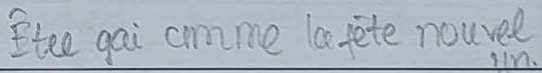 Être gai comme la fête nouvel
un.